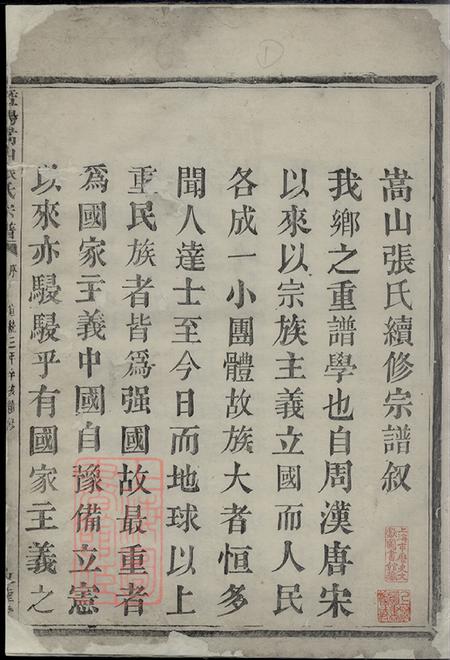 嵩山張氏續修宗譜叙
我鄉之重譜學也自周漢唐宋
以來以宗族主義立國而人民
各成一小團體故族大者恒多
聞人達士至今日而地球以上
重民族者皆爲强國故最重者
爲國家主義中國自豫備立憲
以來亦駸駸乎有國家主義之
嵩山張氏宗譜
上海市歷史文獻圖書館藏